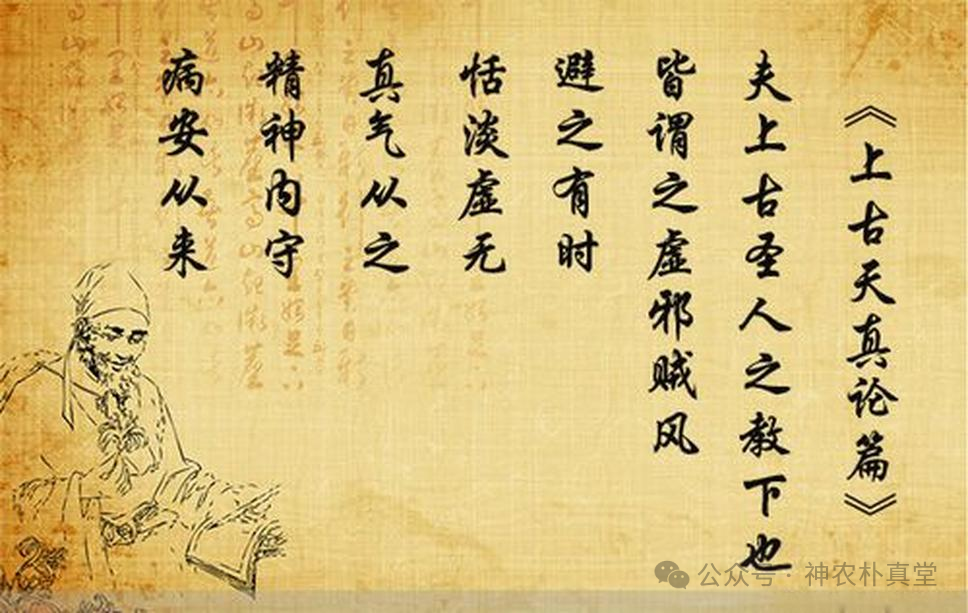 《上古天真论篇》
夫上古圣人之教下也
皆谓之虚邪贼风
避之有时
恬淡虚无
真气从之
精神内守
病安从来
公众号·神农朴真堂